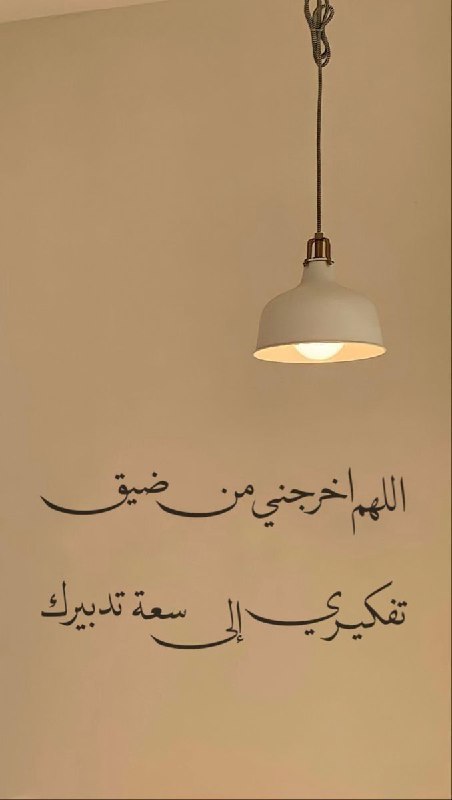 اللهم اخرجني من ضيق
تفكيري إلى سعة تدبيرك